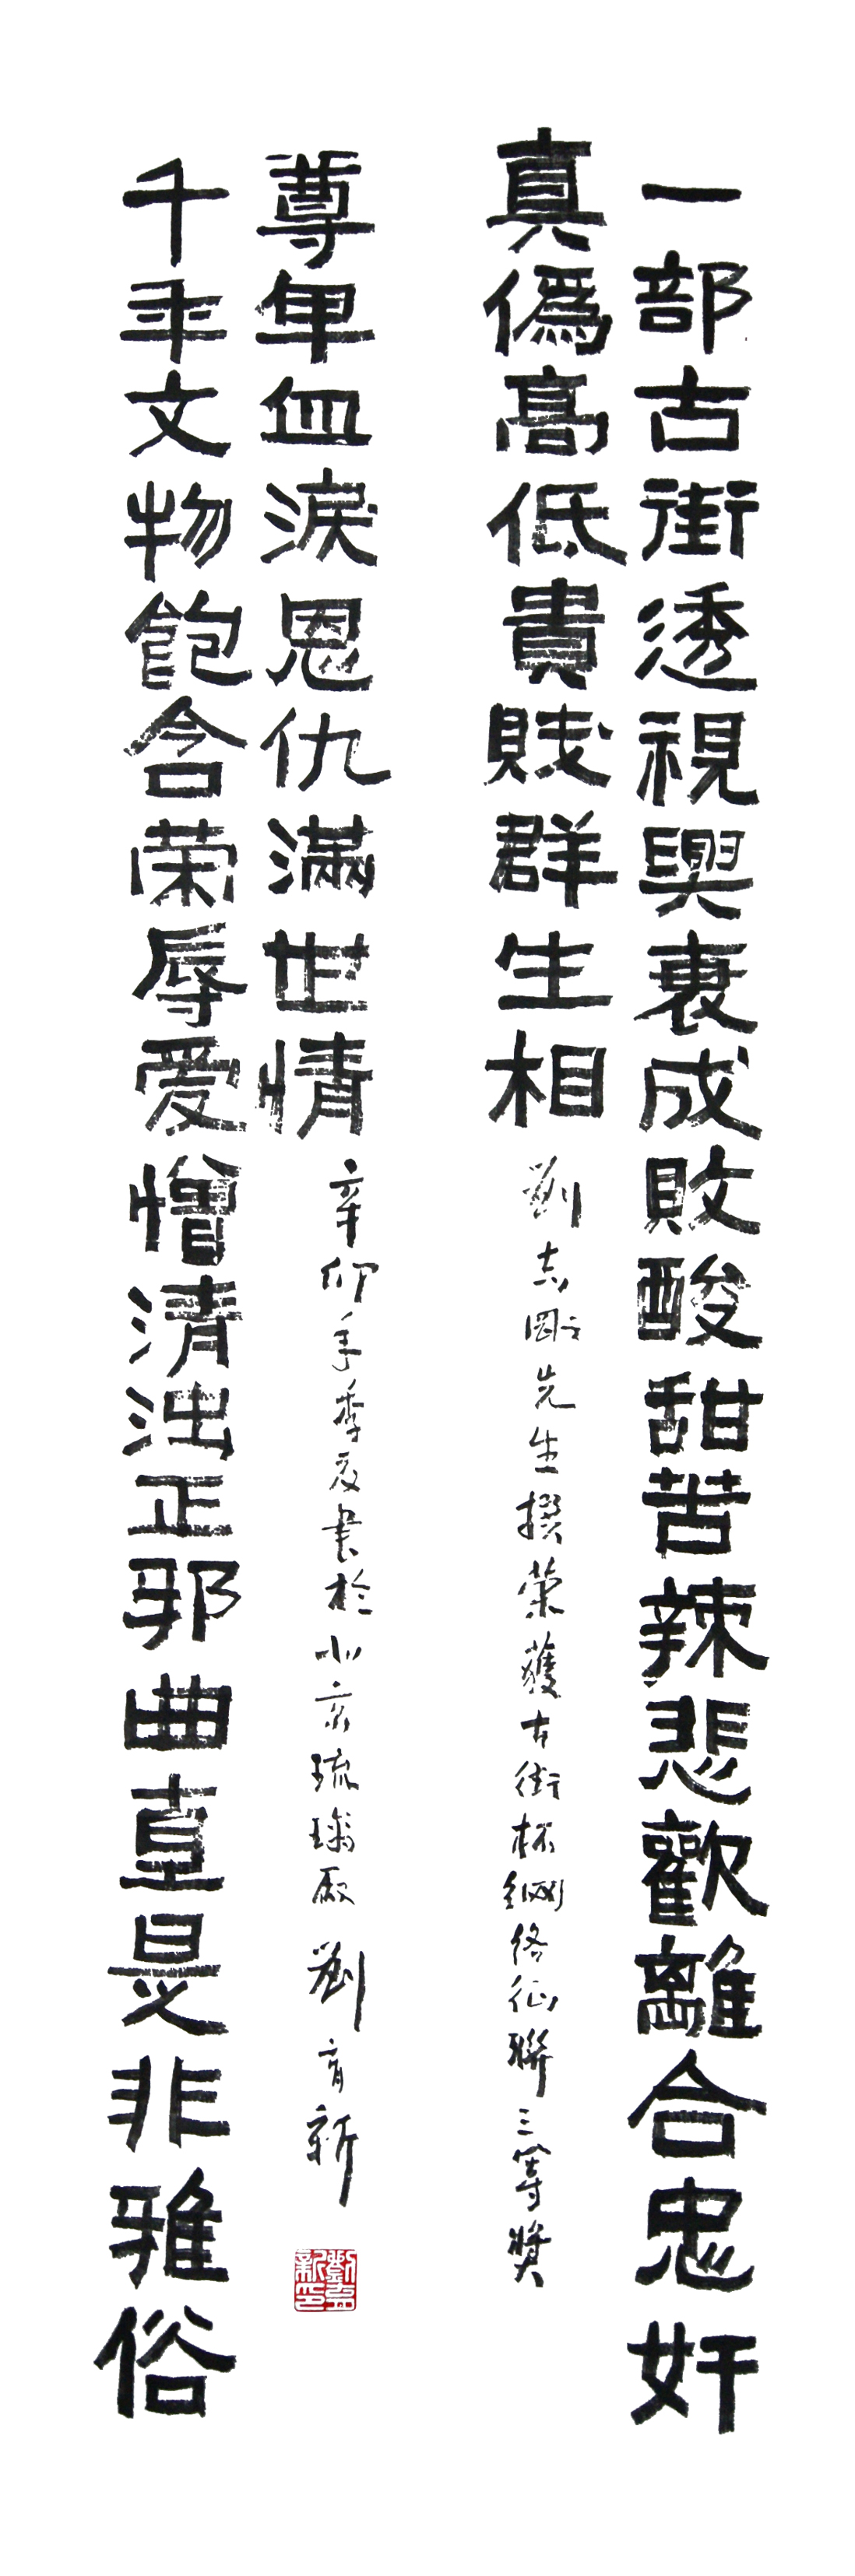 一部古街透視興衰成敗酸甜苦辣悲歡離合忠奸
真偽高低貴賤群生相
劉志剛先生撰榮獲古街杯網絡征聯三等獎
千年文物飽含荣辱爱憎清浊正邪曲直是非雅俗
尊卑血淚恩仇滿世情
辛卯年季夏書於北京琉璃廠 劉育新
劉育新印